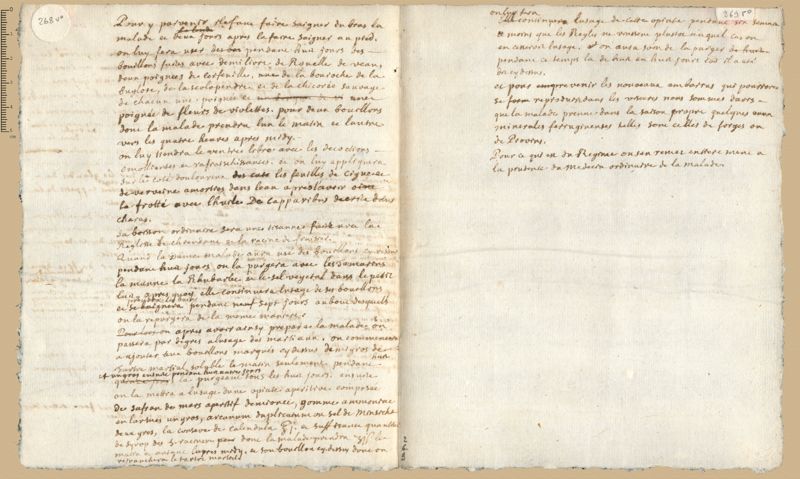 268 vo
Pour y parvenir Il faut faire saigner du bras la
malade et deux jours apres la faire saigner au pied.
on luy fera user des pendant huit jours des
bouillons faits avec demi livre de Rouelle de veau,
deux poignées de cerfeuille, une de la bourache de la
Buglose, de la scolopendre et de la chicorée sauvage
de chacun une poignée et une
poignée de fleurs de violettes pour deux bouillons
dont la malade prendra lun le matin et lautre
vers les quatre heures apres midy.
on luy tiendra le ventre libre avec les decoctions
emollientes et rafraichissantes. et on luy appliquera
sur le coté douloureux les feuilles de cigue et
de verveine amorties dans leau apres lavoir
frotté avec lhuile De Capparibus decrite dans
charas.
sa boisson ordinaire sera une tisanne faite avec la
Reglisse le chiendent et la racine de fraisier.
Quand la jeune malade aura usé des bouillons cy dessus
pendant huit jours on la purgera avec les tamarins
la manne la Rhubarbe et le sel vegetal dans le petit
lait apres quoy elle continuera lusage de ses bouillons
et se baignera pendant sept jours au bout desquels
on la repurgera de la meme maniere.
apres avoir ainsy preparé la malade on
passera par degres a lusage des martiaux. on commencera
a ajouter aux bouillons marqués cy dessus demi gros de
tartre martial soluble le matin seulement pendant
huit
et un gros ensuite pendant
la purgeant tous les huit jours. ensuite
on la mettra a lusage dune opiate aperitive composée
de safran de mars aperitif demi once, gomme ammoniac
en larmes un gros, arcanum duplicatum ou sel de
deux gros, la conserve de calendula et suffisante quantité
de syrop des 5 racines dont la malade prendra le
matin et autant lapres midy, et son bouillon cy dessus dont on
retranchera le tartre martial
268
269 ro
on luy fera
continuera lusage de cette opiate pendant six semaines
a moins que les Regles ne vinssent plustot auquel cas on
en cesseroit lusage. et on aura soin de la purger de huit
pendant ce temps la de huit en huit jours come il a eté
dit cy dessus.
et pour prevenir les nouveaux embarras qui pourroient
se former dans les visceres nous sommes d'avis
que la malade prenne dans la saison propre quelques eaux
minerales ferrugineuses telles sont celles de forges ou
de Provins.
Pour ce qui est du Regime on sen remet entierement a
la prudence du Medecin ordinaire de la malade.